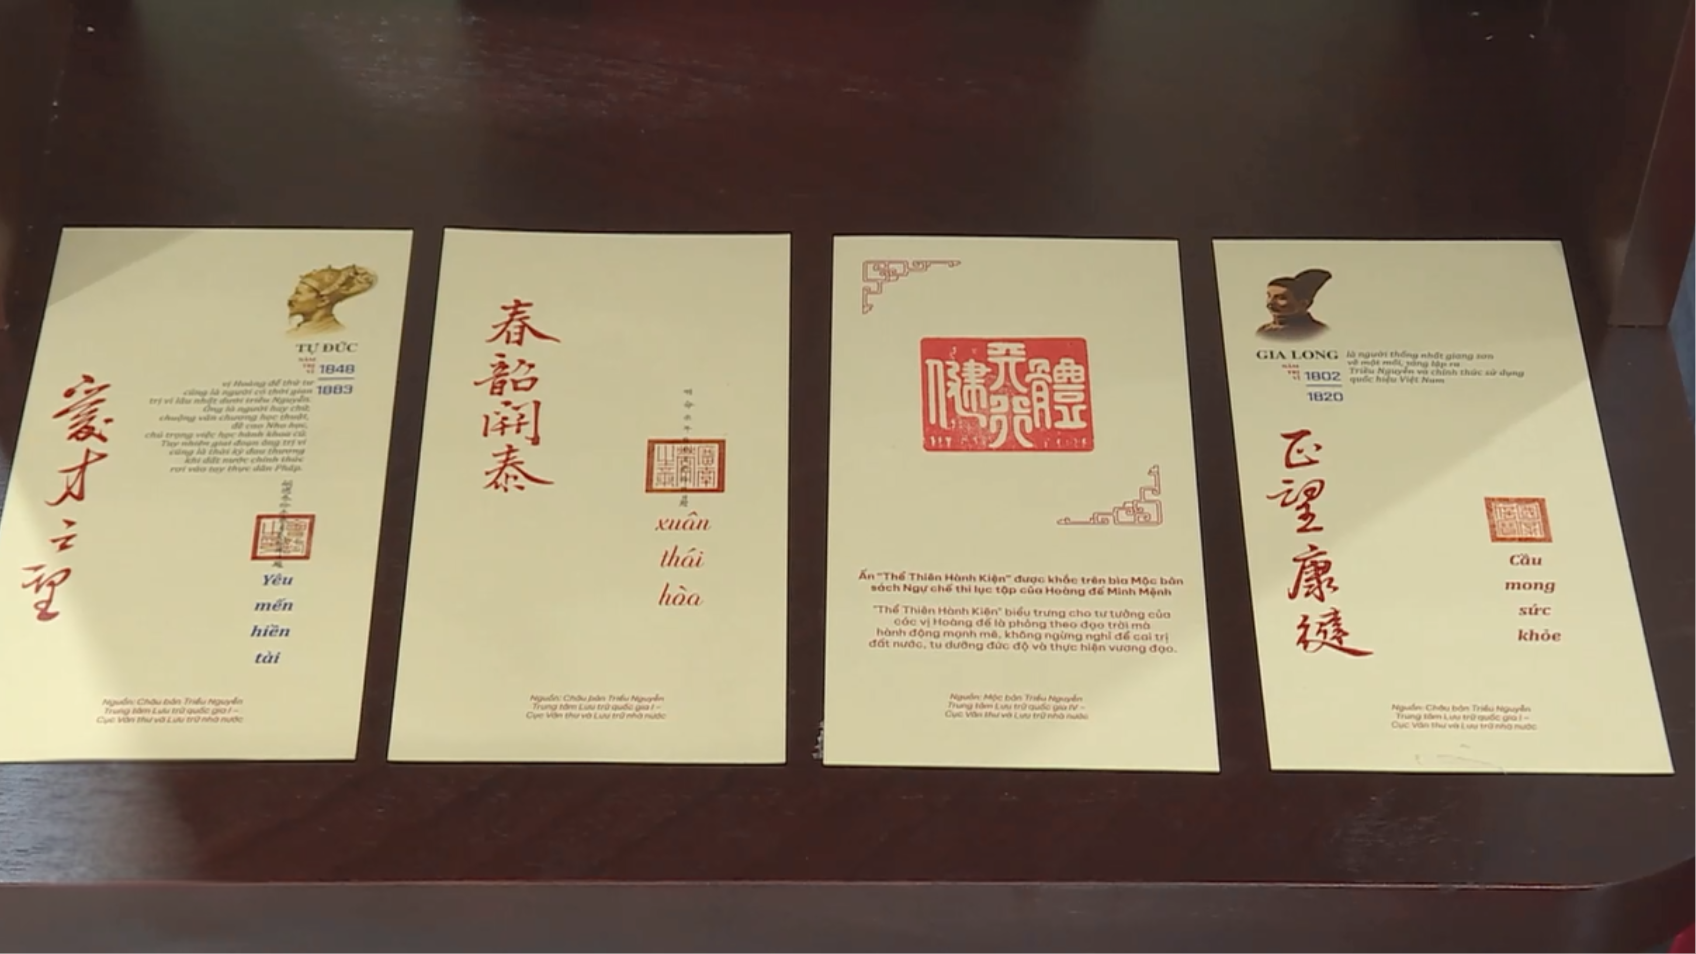 TỰ ĐỨC
NĂM
TRỊ
VÌ
1848
1883
vị Hoàng đế thứ tư
cũng là người có thời gian
trị vì lâu nhất dưới triều Nguyễn.
Ông là người hay chữ,
chuộng văn chương học thuật,
đề cao Nho học,
chú trọng việc học hành khoa cử.
Tuy nhiên giai đoạn ông trị vì
cũng là thời kỳ đau thương
khi đất nước chính thức
rơi vào tay thực dân Pháp.
愛才之聖
Yêu
mến
hiền
tài
Nguồn: Châu bản Triều Nguyễn
Trung tâm Lưu trữ quốc gia I –
Cục Văn thư và Lưu trữ nhà nước
春韶開泰
xuân
thái
hòa
Nguồn: Châu bản Triều Nguyễn
Trung tâm Lưu trữ quốc gia I –
Cục Văn thư và Lưu trữ nhà nước
體天行健
Ấn "Thể Thiên Hành Kiện" được khắc trên bìa Mộc bản
sách Ngự chế thi lục tập của Hoàng đế Minh Mệnh
"Thể Thiên Hành Kiện" biểu trưng cho tư tưởng của
các vị Hoàng đế là phỏng theo đạo trời mà
hành động mạnh mẽ, không ngừng nghỉ để cai trị
đất nước, tu dưỡng đức độ và thực hiện vương đạo.
Nguồn: Mộc bản Triều Nguyễn
Trung tâm Lưu trữ quốc gia IV –
Cục Văn thư và Lưu trữ nhà nước
GIA LONG
NĂM
TRỊ
VÌ
1802
1820
là người thống nhất giang sơn
về một mối, sáng lập ra
Triều Nguyễn và chính thức sử dụng
quốc hiệu Việt Nam
正望康
Cầu
mong
sức
khỏe
Nguồn: Châu bản Triều Nguyễn
Trung tâm Lưu trữ quốc gia I –
Cục Văn thư và Lưu trữ nhà nước